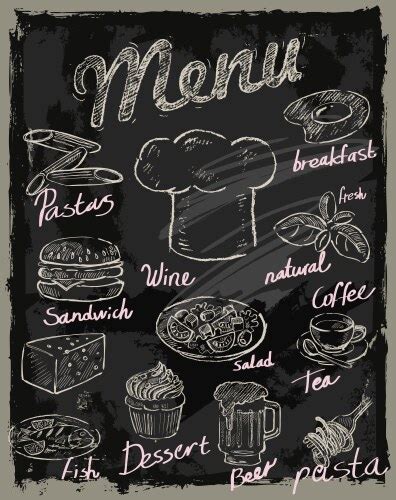 Menu
breakfast
Pastas
fresh
Wine
natural
Sandwich
Coffee
Salad
Tea
Fish
Dessert
Beer
pasta